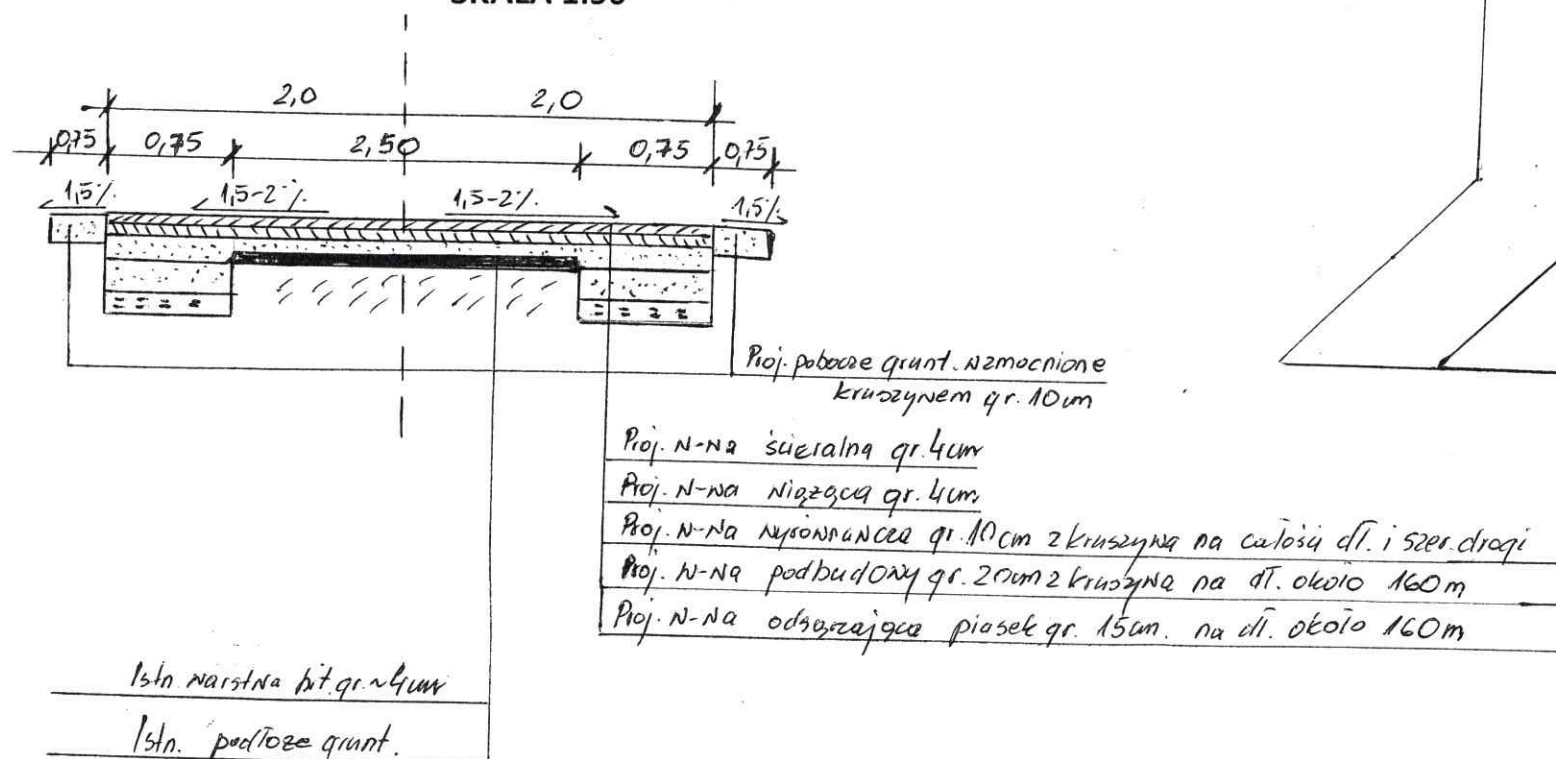 SKALA 1:50
2,0 2,0
0,75 0,75 2,50 0,75 0,75
1,5% 1,5-2% 1,5-2% 1,5%
Proj. pobocze grunt. wzmocnione
kruszywem gr. 10cm
Proj. w-wa ścieralna gr. 4cm
Proj. w-wa wiążąca gr. 4cm
Proj. w-wa wyrównawcza gr. 10cm z kruszywa na całości dł. i szer. drogi
Proj. w-wa podbudowy gr. 20cm z kruszywa na dł. około 160m
Proj. w-wa odsączająca piasek gr. 15cm. na dł. około 160m
Istn. warstwa bit. gr. ~4cm
Istn. podłoże grunt.